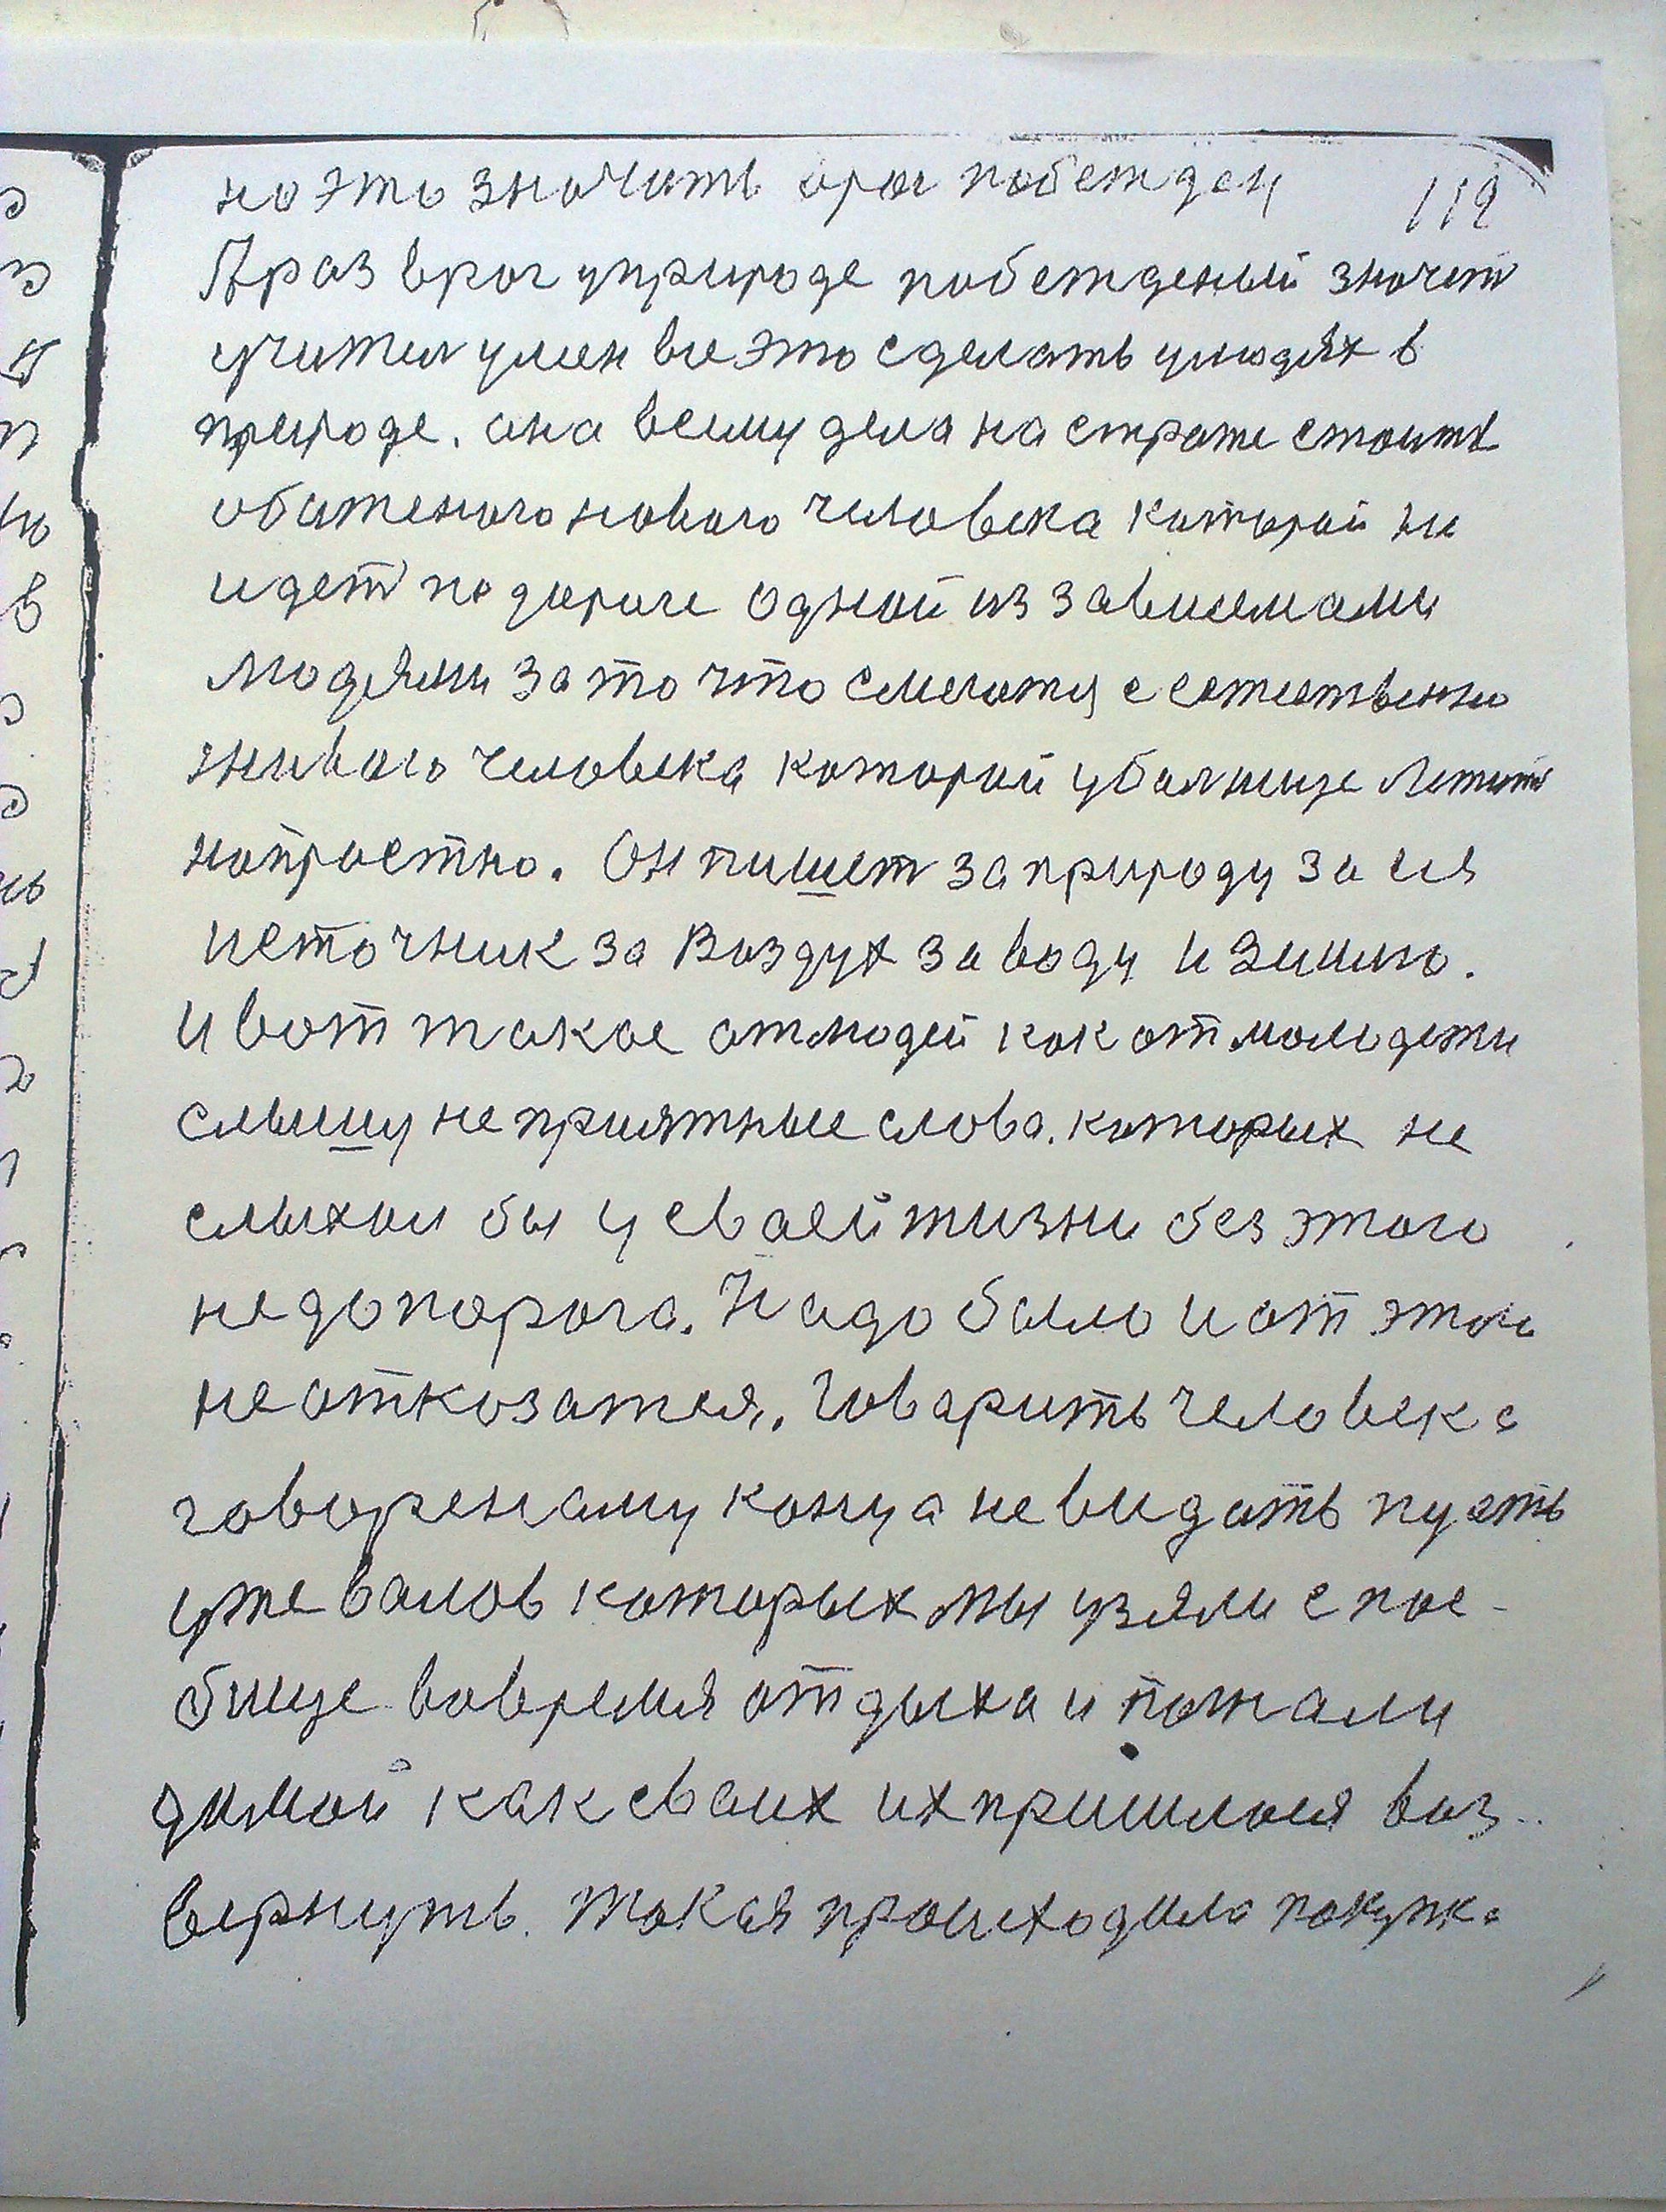 но это значить враг побежден
119
А раз враг уприроде побежденый значет
учител умен все это сделать улюдях в
природе. она всему дела на страже стоить
обиженого нового человека каторай не
идет по дороге одной из зависемами
людями за то что смеются с естественно
живого человека каторай убальнице лежит
напрастно. Он пишет за природу за ея
источник за Воздух за воду и Землю.
И вот такое отлюдей как от молодежи
слышу не приятные слова. которых не
слыхал бы у сваей жизни без этого
не до порога. Надо было и от этого
не отказатся. Говарить человек а
говореному конца не видать пусть
уже валов каторых мы узяли с пас-
бище вовремя отдыха и погнали
димой как сваих их пришлося ваз-
вернуть. Такая происходила покупка